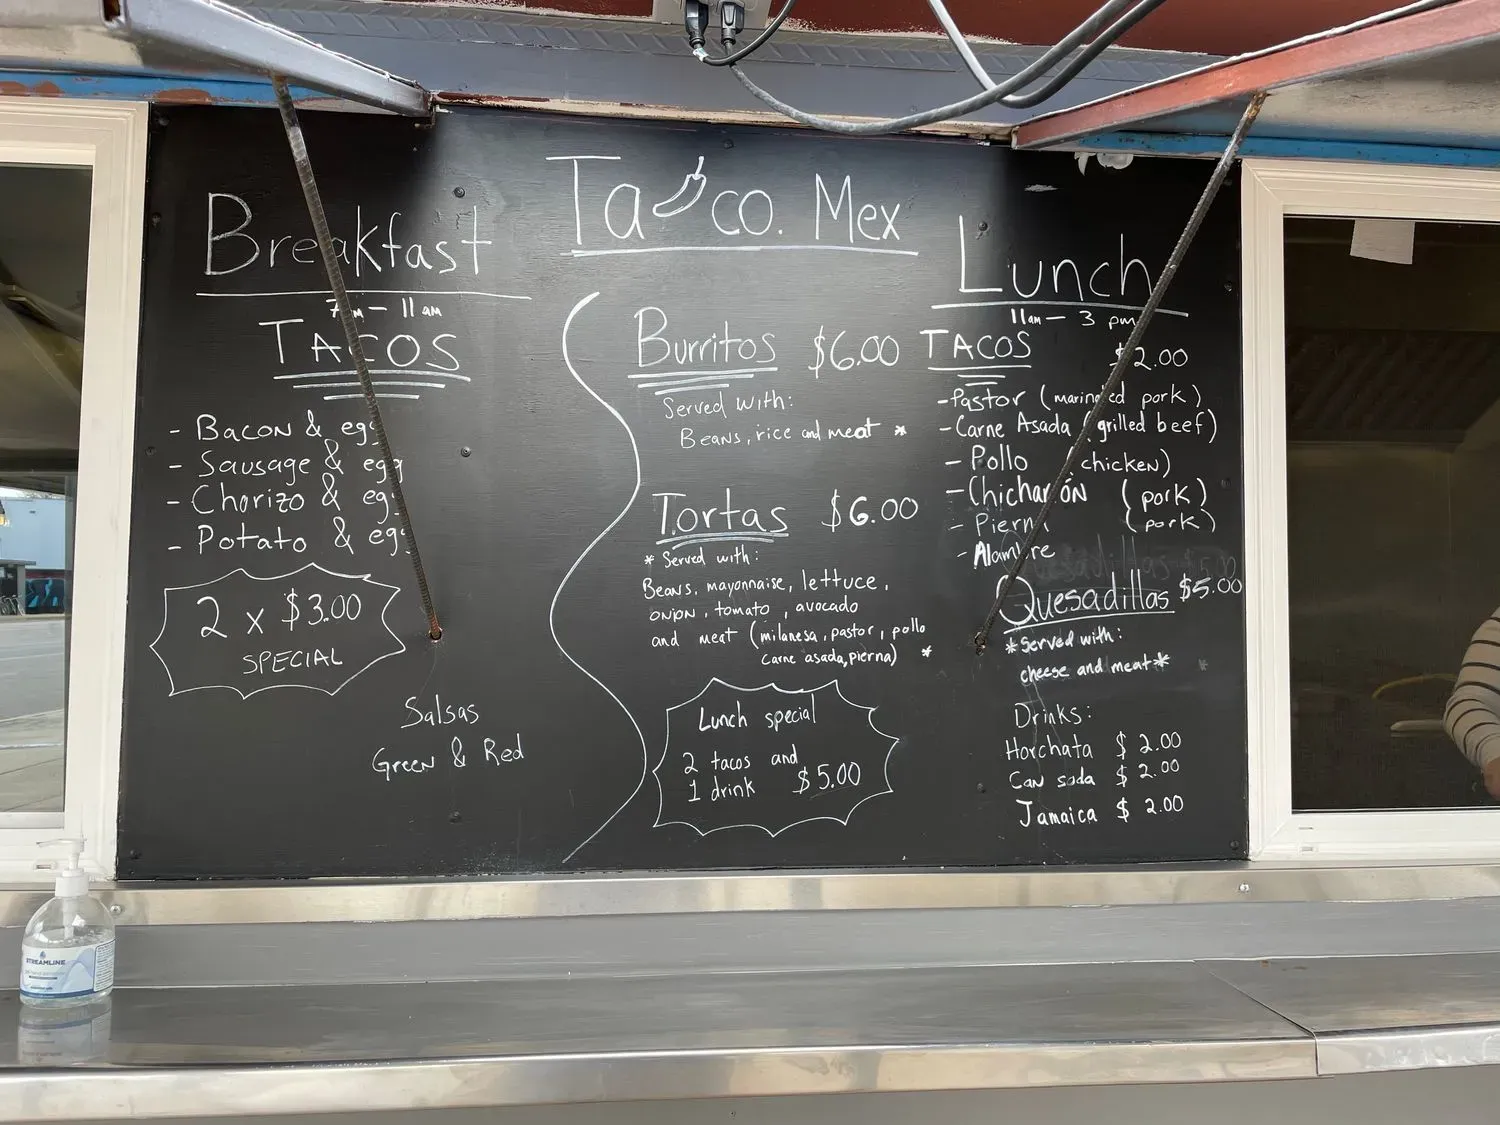 Ta co. Mex
Breakfast
7am - 11am
TACOS
- Bacon & egg
- Sausage & egg
- Chorizo & egg
- Potato & egg
2 x $3.00
SPECIAL
Salsas
Green & Red
Burritos $6.00
Served with:
Beans, rice and meat *
Tortas $6.00
* Served with:
Beans, mayonnaise, lettuce,
onion, tomato, avocado
and meat (milanesa, pastor, pollo
carne asada, pierna) *
Lunch special
2 tacos and
1 drink $5.00
Lunch
11am - 3 pm
TACOS $2.00
- Pastor (marinated pork)
- Carne Asada (grilled beef)
- Pollo (chicken)
- Chicharrón (pork)
- Pierna (pork)
- Alambre
Quesadillas $5.00
* Served with:
cheese and meat *
Drinks:
Horchata $ 2.00
Can soda $ 2.00
Jamaica $ 2.00
STREAMLINE